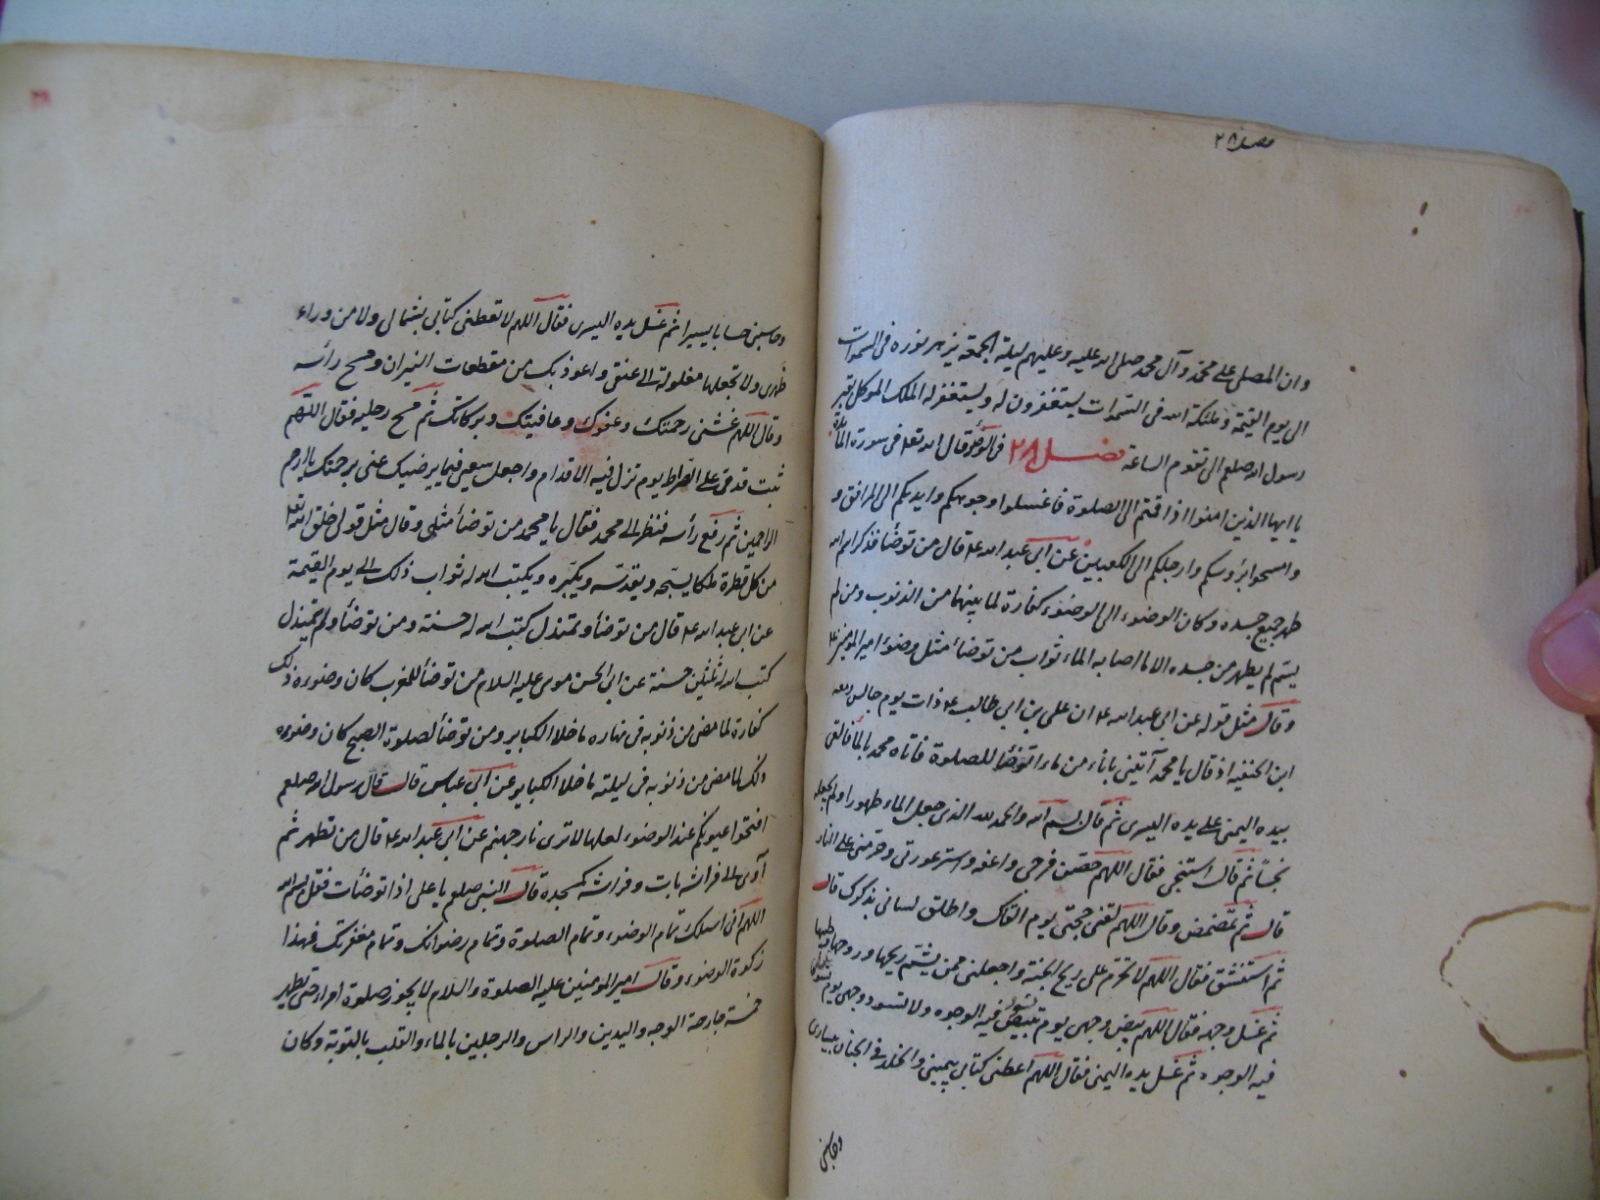 فصل ٢٨
وان المصلی علی محمد وآل محمد صلی الله علیه وعلیهم لیلة الجمعة یزهر نوره فی السموات
الی یوم القیمة وملئکة الله فی السموات یستغفرون له ویستغفر له الملک الموکل بقبر
رسول الله صلعم الی تقوم الساعة فصل ٢٨ فی الوضوء قال الله تعالی فی سورة المائدة
یا ایها الذین امنوا اذا قمتم الی الصلوة فاغسلوا وجوهکم وایدیکم الی المرافق و
وامسحوا برؤسکم وارجلکم الی الکعبین عن ابی عبد الله ع قال من توضأ فذکر اسم الله
طهر جمیع جسده وکان الوضوء الی الوضوء کفارة لما بینهما من الذنوب ومن لم
یسم لم یطهر من جسده الا ما اصابه الماء ثواب من توضأ مثل وضوء امیر المؤمنین ع
وقال مثل قوله عن ابی عبد الله ع ان علی بن ابی طالب ع ذات یوم جالس ومعه
ابن الحنفیه اذ قال یا محمد آتینی باناء من ماء اتوضأ للصلوة فاتاه محمد بالماء فالقی
بیده الیمنی علی یده الیسری ثم قال بسم الله والحمد لله الذی جعل الماء طهورا ولم یجعله
نجسا ثم قال استنجی فقال اللهم حصن فرجی واعفه واستر عورتی وحرمنی علی النار
قال ثم تمضمض وقال اللهم لقنی حجتی یوم القاک واطلق لسانی بذکرک قال
ثم استنشق فقال اللهم لا تحرم علی ریح الجنة واجعلنی ممن یشم ریحها وروحها وطیبها
ثم غسل وجهه فقال اللهم بیض وجهی یوم تبیض فیه الوجوه ولا تسود وجهی یوم
فیه الوجوه ثم غسل یده الیمنی فقال اللهم اعطنی کتابی بیمینی والخلد فی الجنان بیساری
وحاسبنی
وحاسبنی حسابا یسیرا ثم غسل یده الیسری فقال اللهم لا تعطنی کتابی بشمالی ولا من وراء
ظهری ولا تجعلها مغلولة الی عنقی واعوذ بک من مقطعات النیران ومسح رأسه
وقال اللهم غشنی رحمتک وعفوک وعافیتک وبرکاتک ثم مسح رجلیه فقال اللهم
ثبت قدمی علی الصراط یوم تزل فیه الاقدام واجعل سعیی فیما یرضیک عنی برحمتک یا ارحم
الراحمین ثم رفع رأسه فنظر الی محمد فقال یا محمد من توضأ مثلی وقال مثل قولی خلق الله تعالی
من کل قطرة ملکا یسبحه ویقدسه ویکبره ویکتب الله له ثواب ذلک الی یوم القیمة
عن ابی عبد الله ع قال من توضأ وتمندل کتب الله له حسنة ومن توضأ ولم یتمندل
کتب الله له ثلثین حسنة عن ابی الحسن موسی علیه السلام من توضأ للمغرب کان وضوءه ذلک
کفارة لما مضی من ذنوبه فی نهاره ما خلا الکبایر ومن توضأ لصلوة الصبح کان وضوءه
ذلک لما مضی من ذنوبه فی لیلته ما خلا الکبایر عن ابی عباس قال قال رسول الله صلعم
افتحوا عیونکم عند الوضوء لعلها لا تری نار جهنم عن ابی عبد الله ع قال من تطهر ثم
آوی الی فراشه بات وفراشه کمسجده قال النبی صلعم یا علی اذا توضأت فقل بسم الله
اللهم انی اسئلک تمام الوضوء وتمام الصلوة وتمام رضوانک وتمام مغفرتک فهذا
زکوة الوضوء وقال امیر المومنین علیه الصلوة والسلام لا یجوز صلوة امراء حتی یطهر
خمسة جارحة الوجه والیدین والراس والرجلین بالماء والقلب بالتوبة وکان